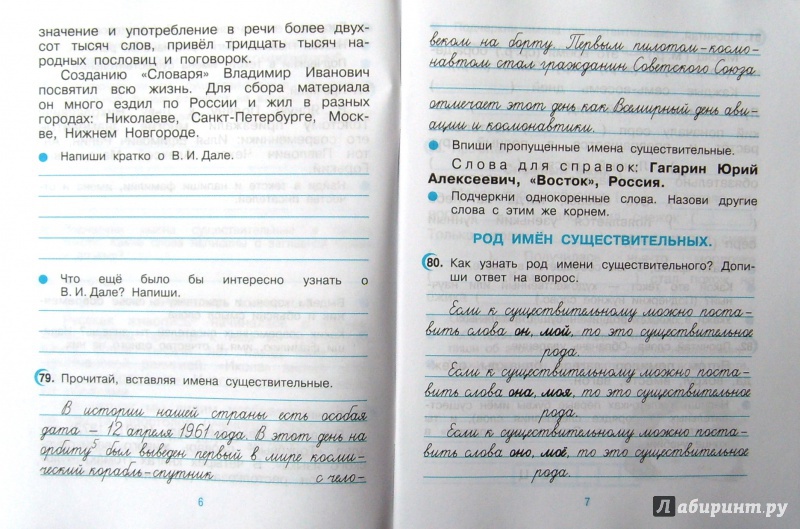 значение и употребление в речи более двух-
сот тысяч слов, привёл тридцать тысяч на-
родных пословиц и поговорок.
Созданию «Словаря» Владимир Иванович
посвятил всю жизнь. Для сбора материала
он много ездил по России и жил в разных
городах: Николаеве, Санкт-Петербурге, Моск-
ве, Нижнем Новгороде.
Напиши кратко о В. И. Дале.
Что ещё было бы интересно узнать о
В. И. Дале? Напиши.
79. Прочитай, вставляя имена существительные.
В истории нашей страны есть особая
дата – 12 апреля 1961 года. В этот день на
орбиту⁵ был выведен первый в мире косми-
ческий корабль-спутник с чело-
6
веком на борту. Первым пилотом-космо-
навтом стал гражданин Советского Союза
отмечает этот день как Всемирный день ави-
ации и космонавтики.
Впиши пропущенные имена существительные.
Слова для справок: Гагарин Юрий
Алексеевич, «Восток», Россия.
Подчеркни однокоренные слова. Назови другие
слова с этим же корнем.
РОД ИМЁН СУЩЕСТВИТЕЛЬНЫХ.
80. Как узнать род имени существительного? Допи-
ши ответ на вопрос.
Если к существительному можно поста-
вить слова он, мой, то это существительное
рода.
Если к существительному можно поста-
вить слова она, моя, то это существительное
рода.
Если к существительному можно поста-
вить слова оно, моё, то это существительное
рода.
7
Лабиринт.ру